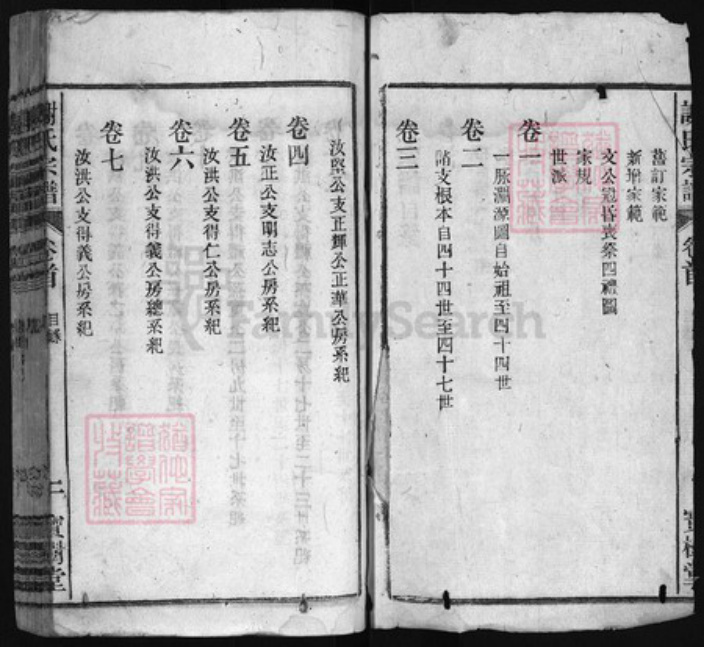 舊訂家範
新增家範
文公冠昏喪祭四禮圖
家規
世派
卷一
一脉淵源圖自始祖至四十四世
卷二
諸支根本自四十四世至四十七世
卷三
汝堅公支正輝公正華公房系紀
卷四
汝正公支明志公房系紀
卷五
汝洪公支得仁公房系紀
卷六
汝洪公支得義公房總系紀
卷七
汝洪公支得義公房系紀
謝氏宗譜
卷首
目錄
二
寶樹堂
FamilySearch